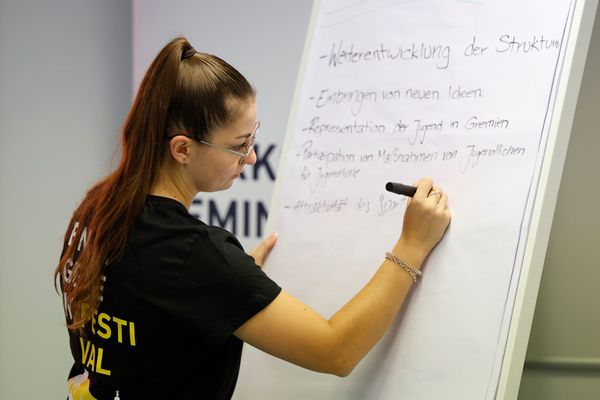 - Weiterentwicklung der Struktur
- Einbringen von neuen Ideen
- Representation der Jugend in Gremien
- Partizipation von Maßnahmen von Jugendlichen
für Jugendliche
- Attraktivität des Sport
AK
EMIN
EN
ESTI
VAL